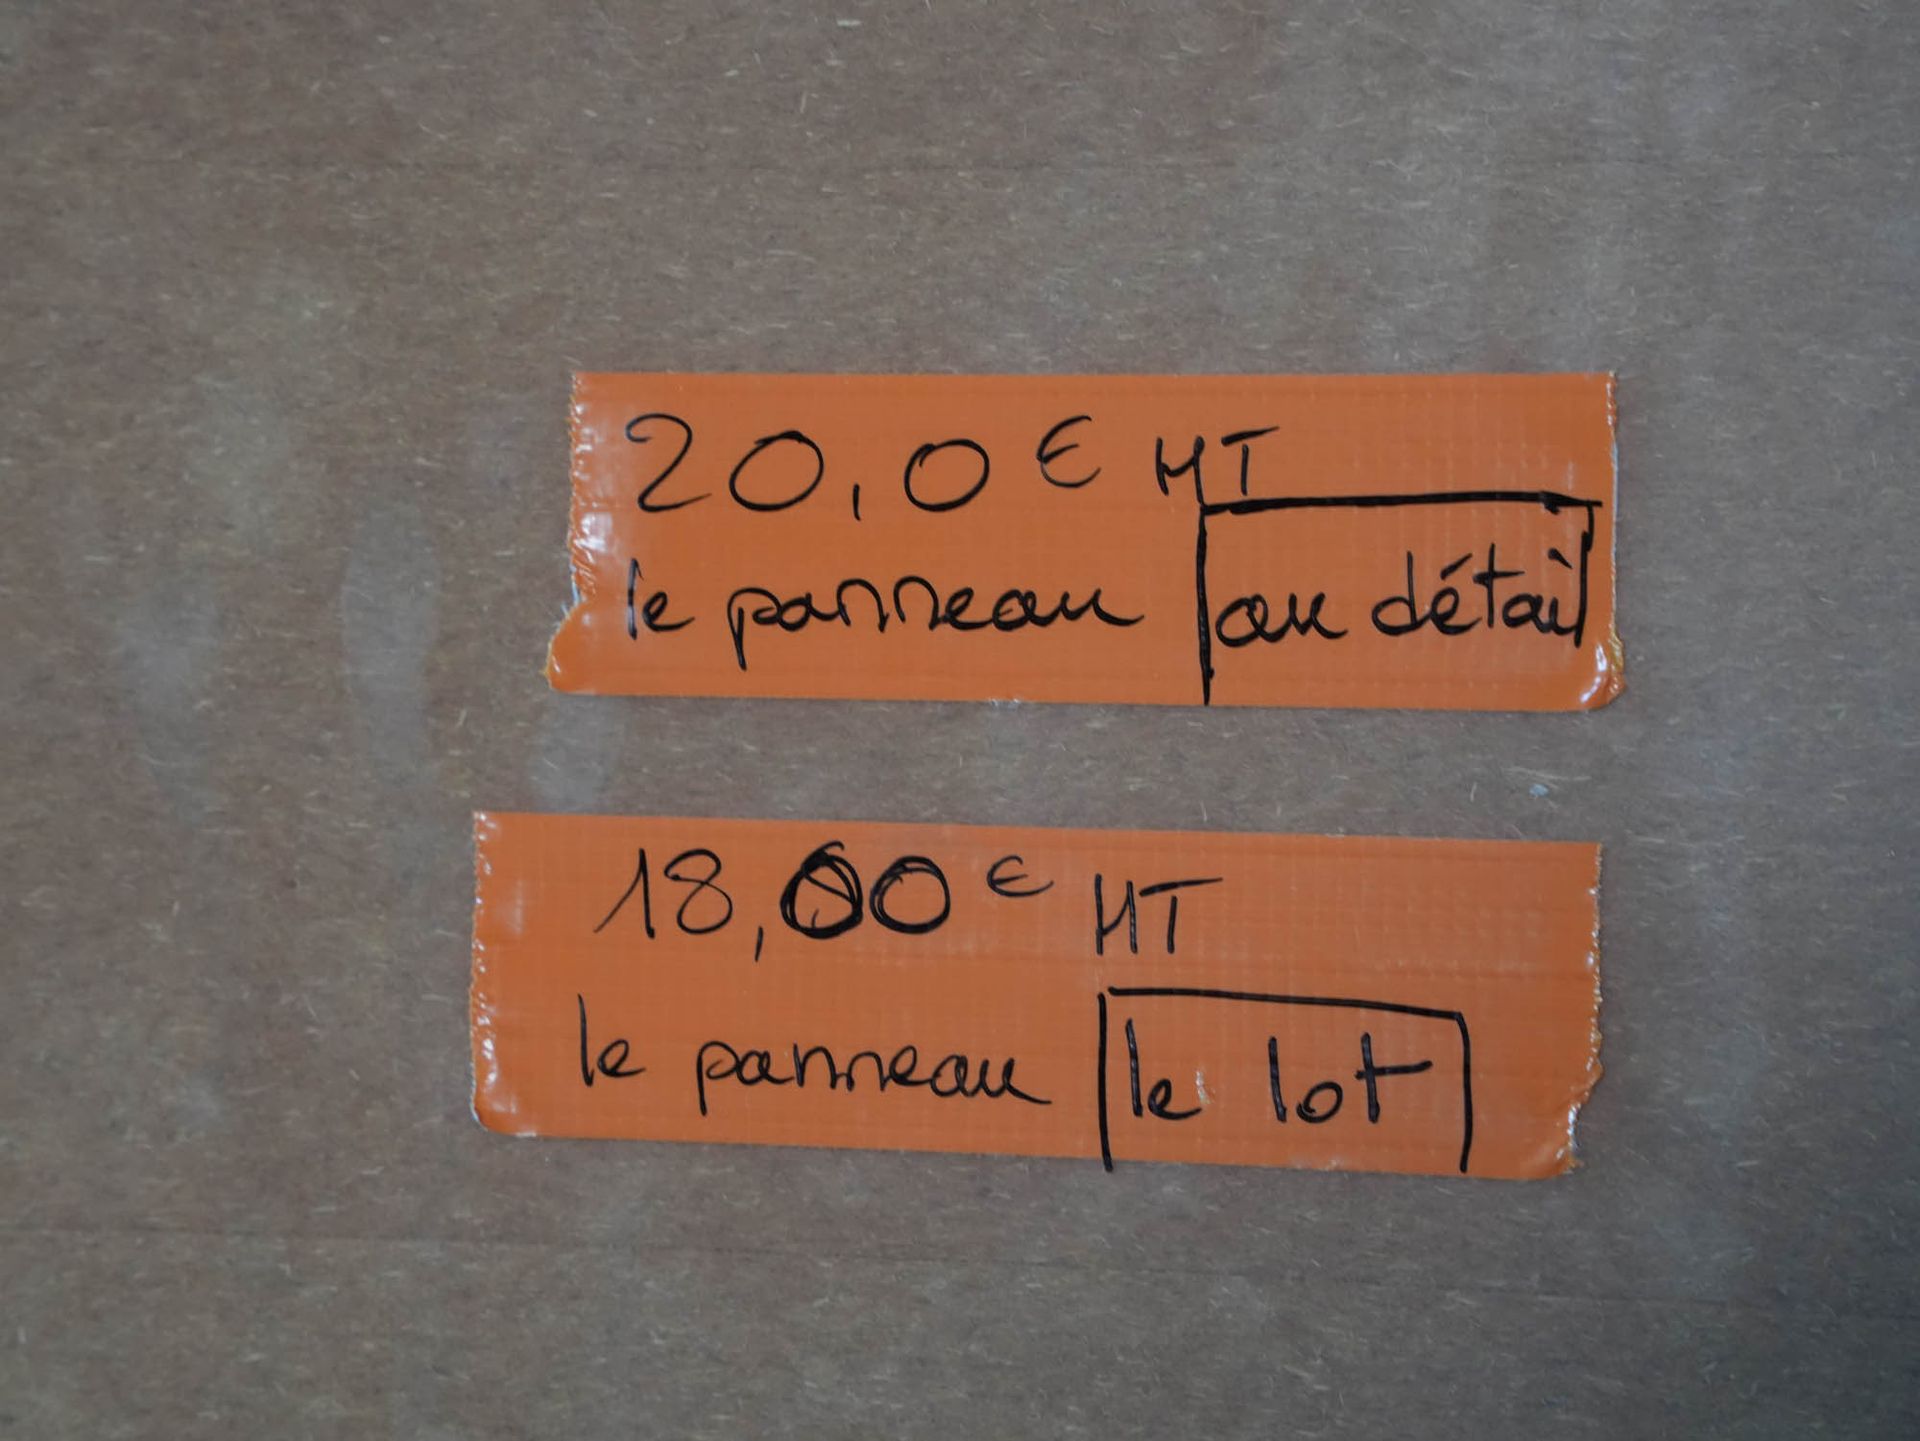 20,0 € HT
le panneau au détail
18,00 € HT
le panneau le lot